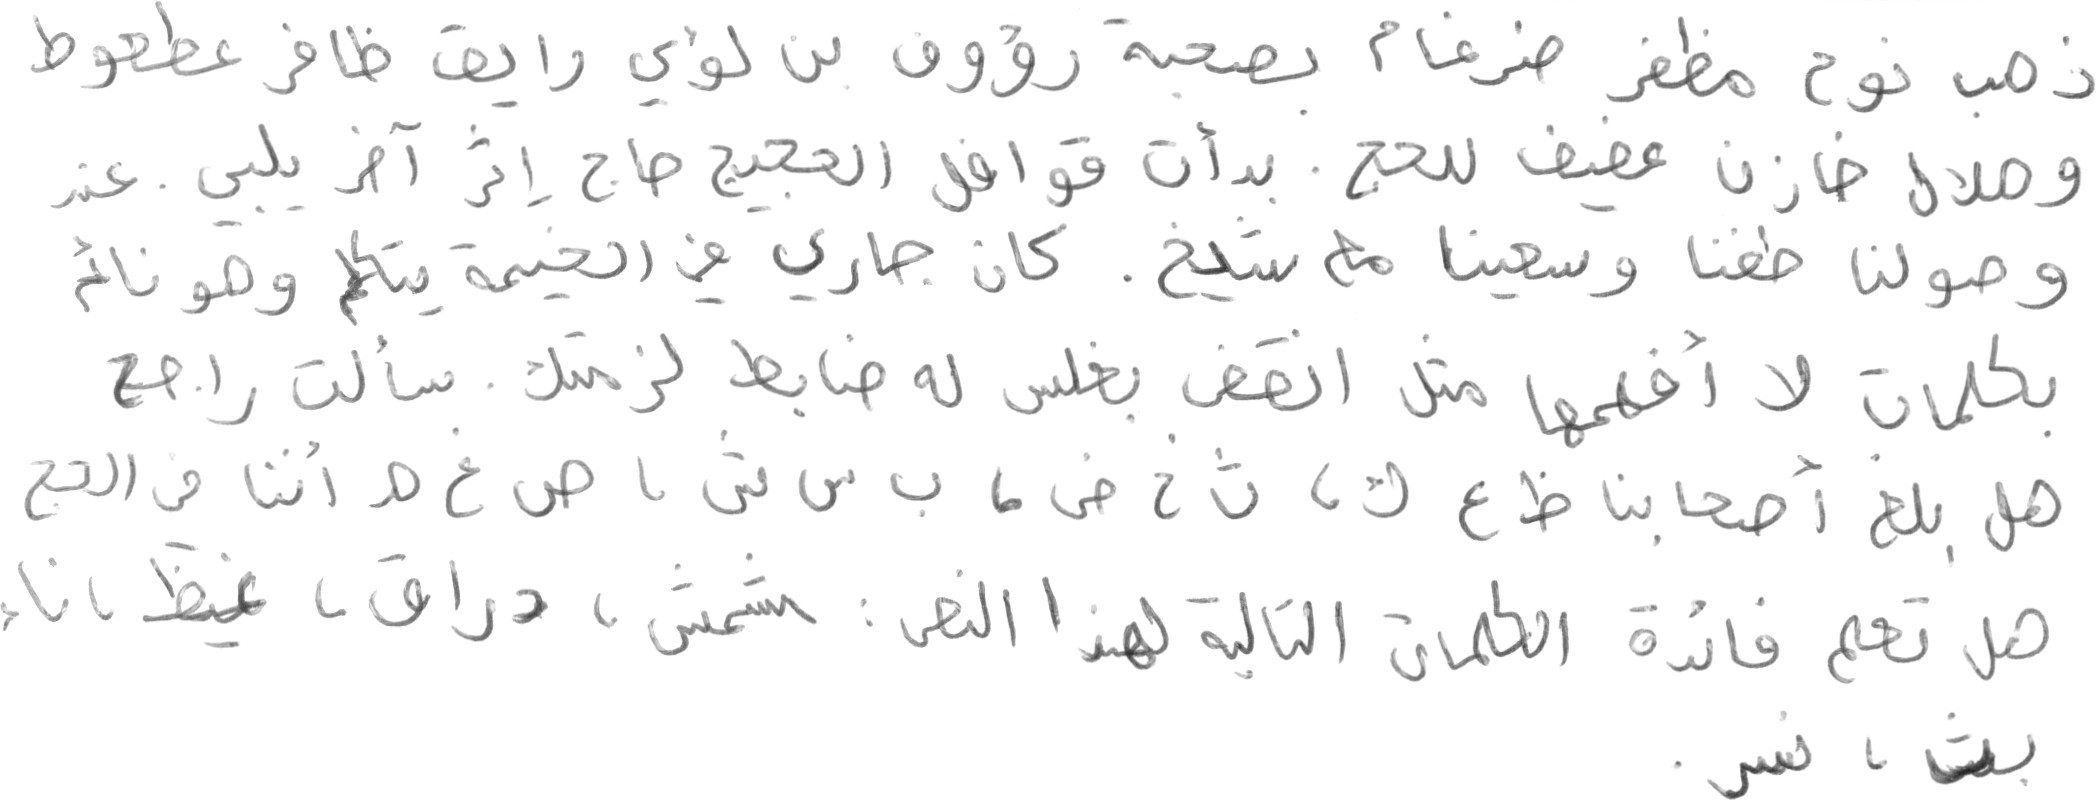 ذهب نوح مظفر ضرغام بصحبة رؤوف بن لؤي رايق ظافر عطعوط
وهلال خازن عفيف للحج . بدأت قوافل الحجيج حاج إثر آخر يلبي . عند
وصولنا طفنا وسعينا مع شيخ . كان جاري في الخيمة يتكلم وهو نائم
بكلمات لا أفهمها مثل انقض بغلس له ضابط لزمتك . سألت راجح
هل بلغ أصحابنا ظ ع ك ، ث خ ض ، ب س ش ، ص غ ه أننا في الحج
هل تعلم فائدة الكلمات التالية لهذا النص : مشمش ، دراق ، غيظ ، ناء ،
بث ، نسر .